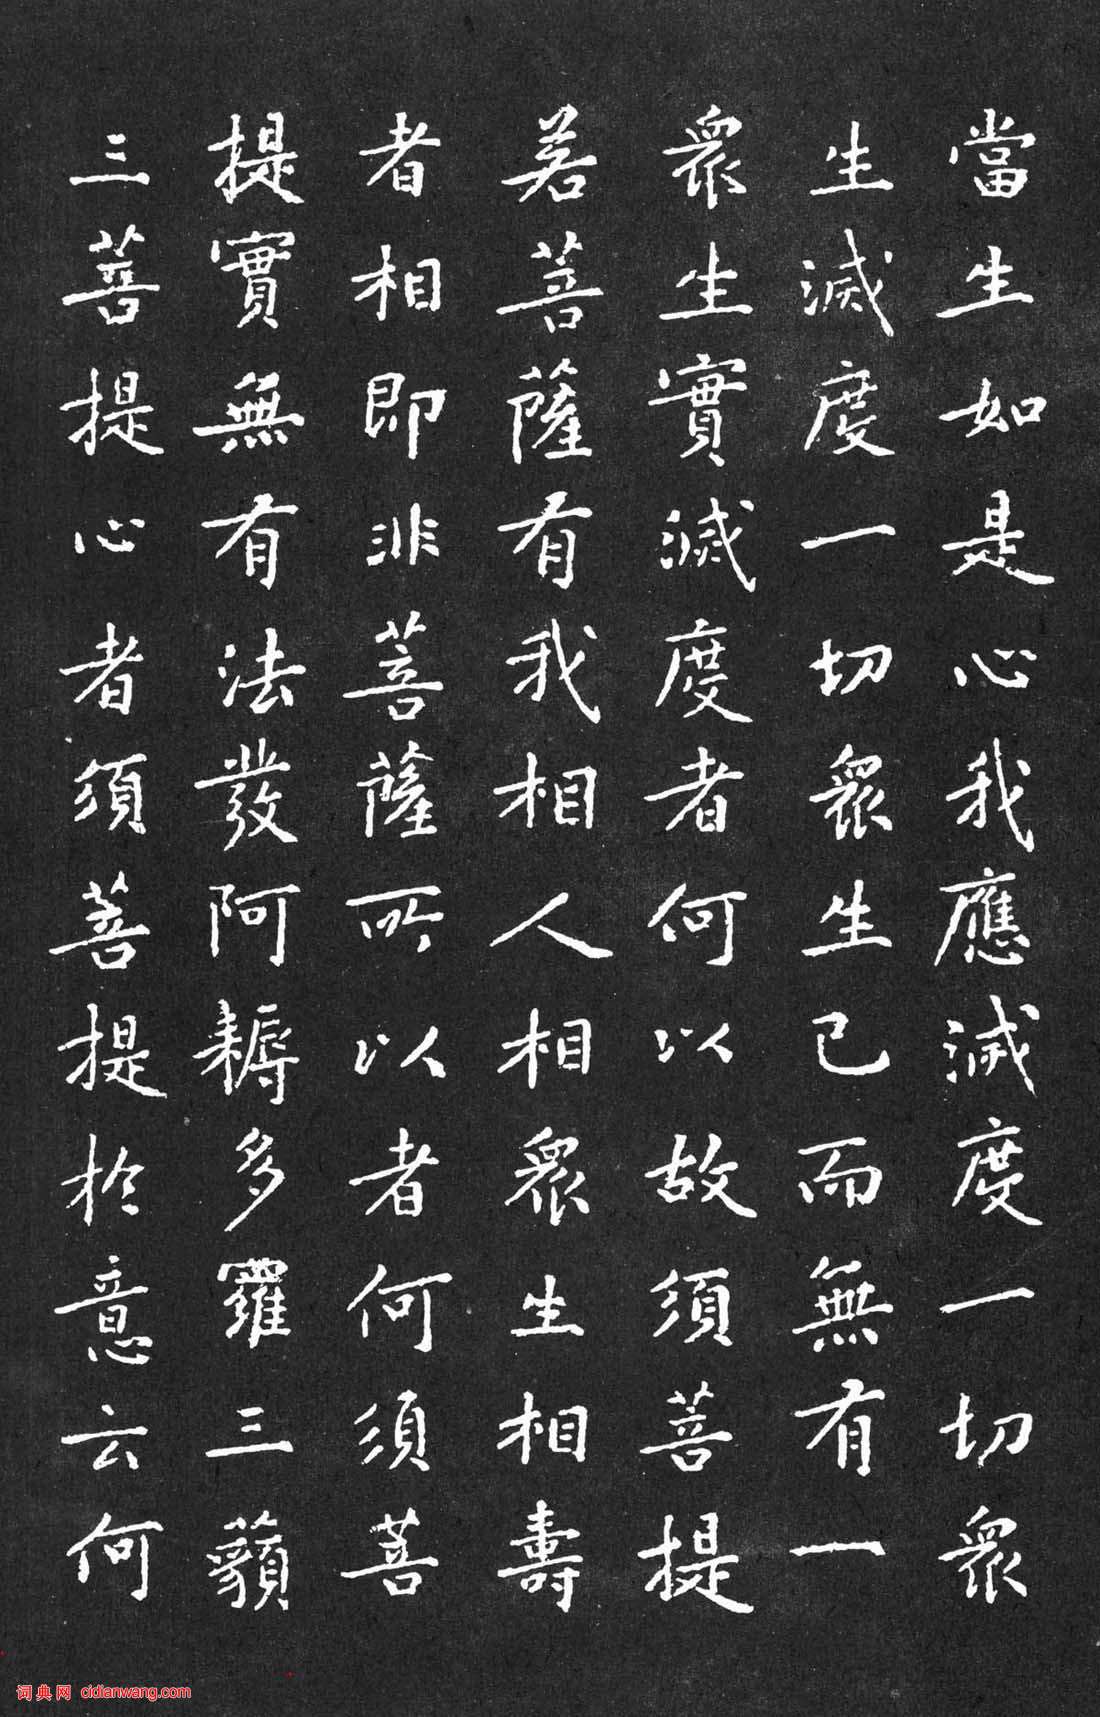 當生如是心我應滅度一切眾
生滅度一切眾生已而無有一
眾生實滅度者何以故須菩提
若菩薩有我相人相眾生相壽
者相即非菩薩所以者何須菩
提實無有法發阿耨多羅三藐
三菩提心者須菩提於意云何
词典网 cidianwang.com